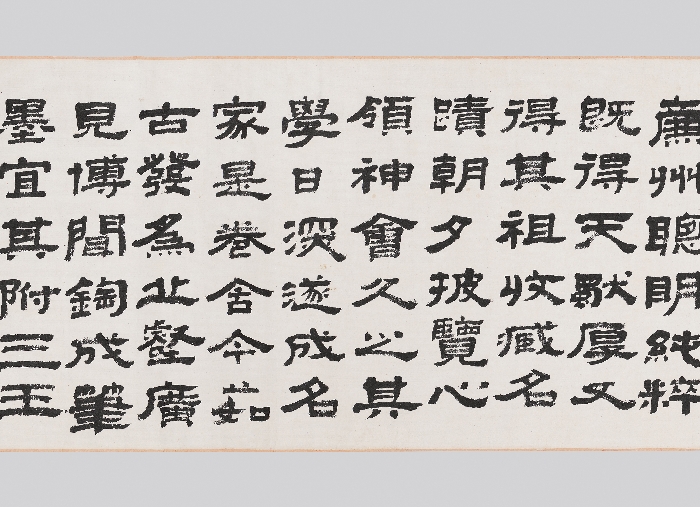 廉州聰明純粹
既得天猷厚又
得其祖收藏名
蹟朝夕披覽心
領神會久之其
學日深遂成名
家是卷舍今茹
古發為北壑廣
見博聞鎔成筆
墨宜其附三王